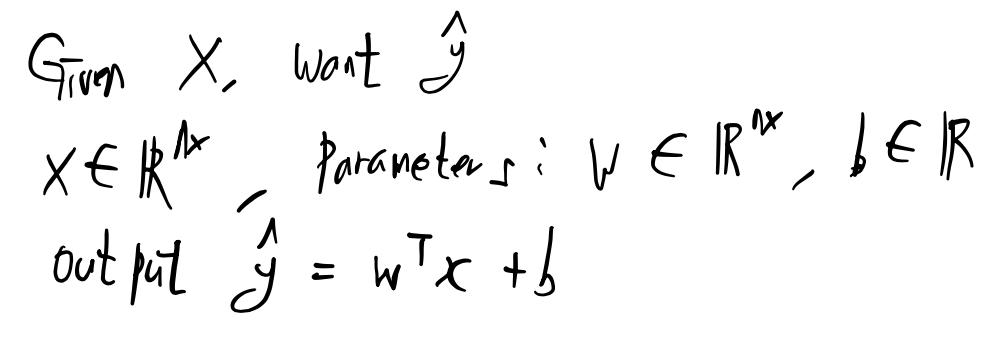 Given X, want ŷ
X ∈ ℝ^nx, Parameters: W ∈ ℝ^nx, b ∈ ℝ
output ŷ = w^T x + b